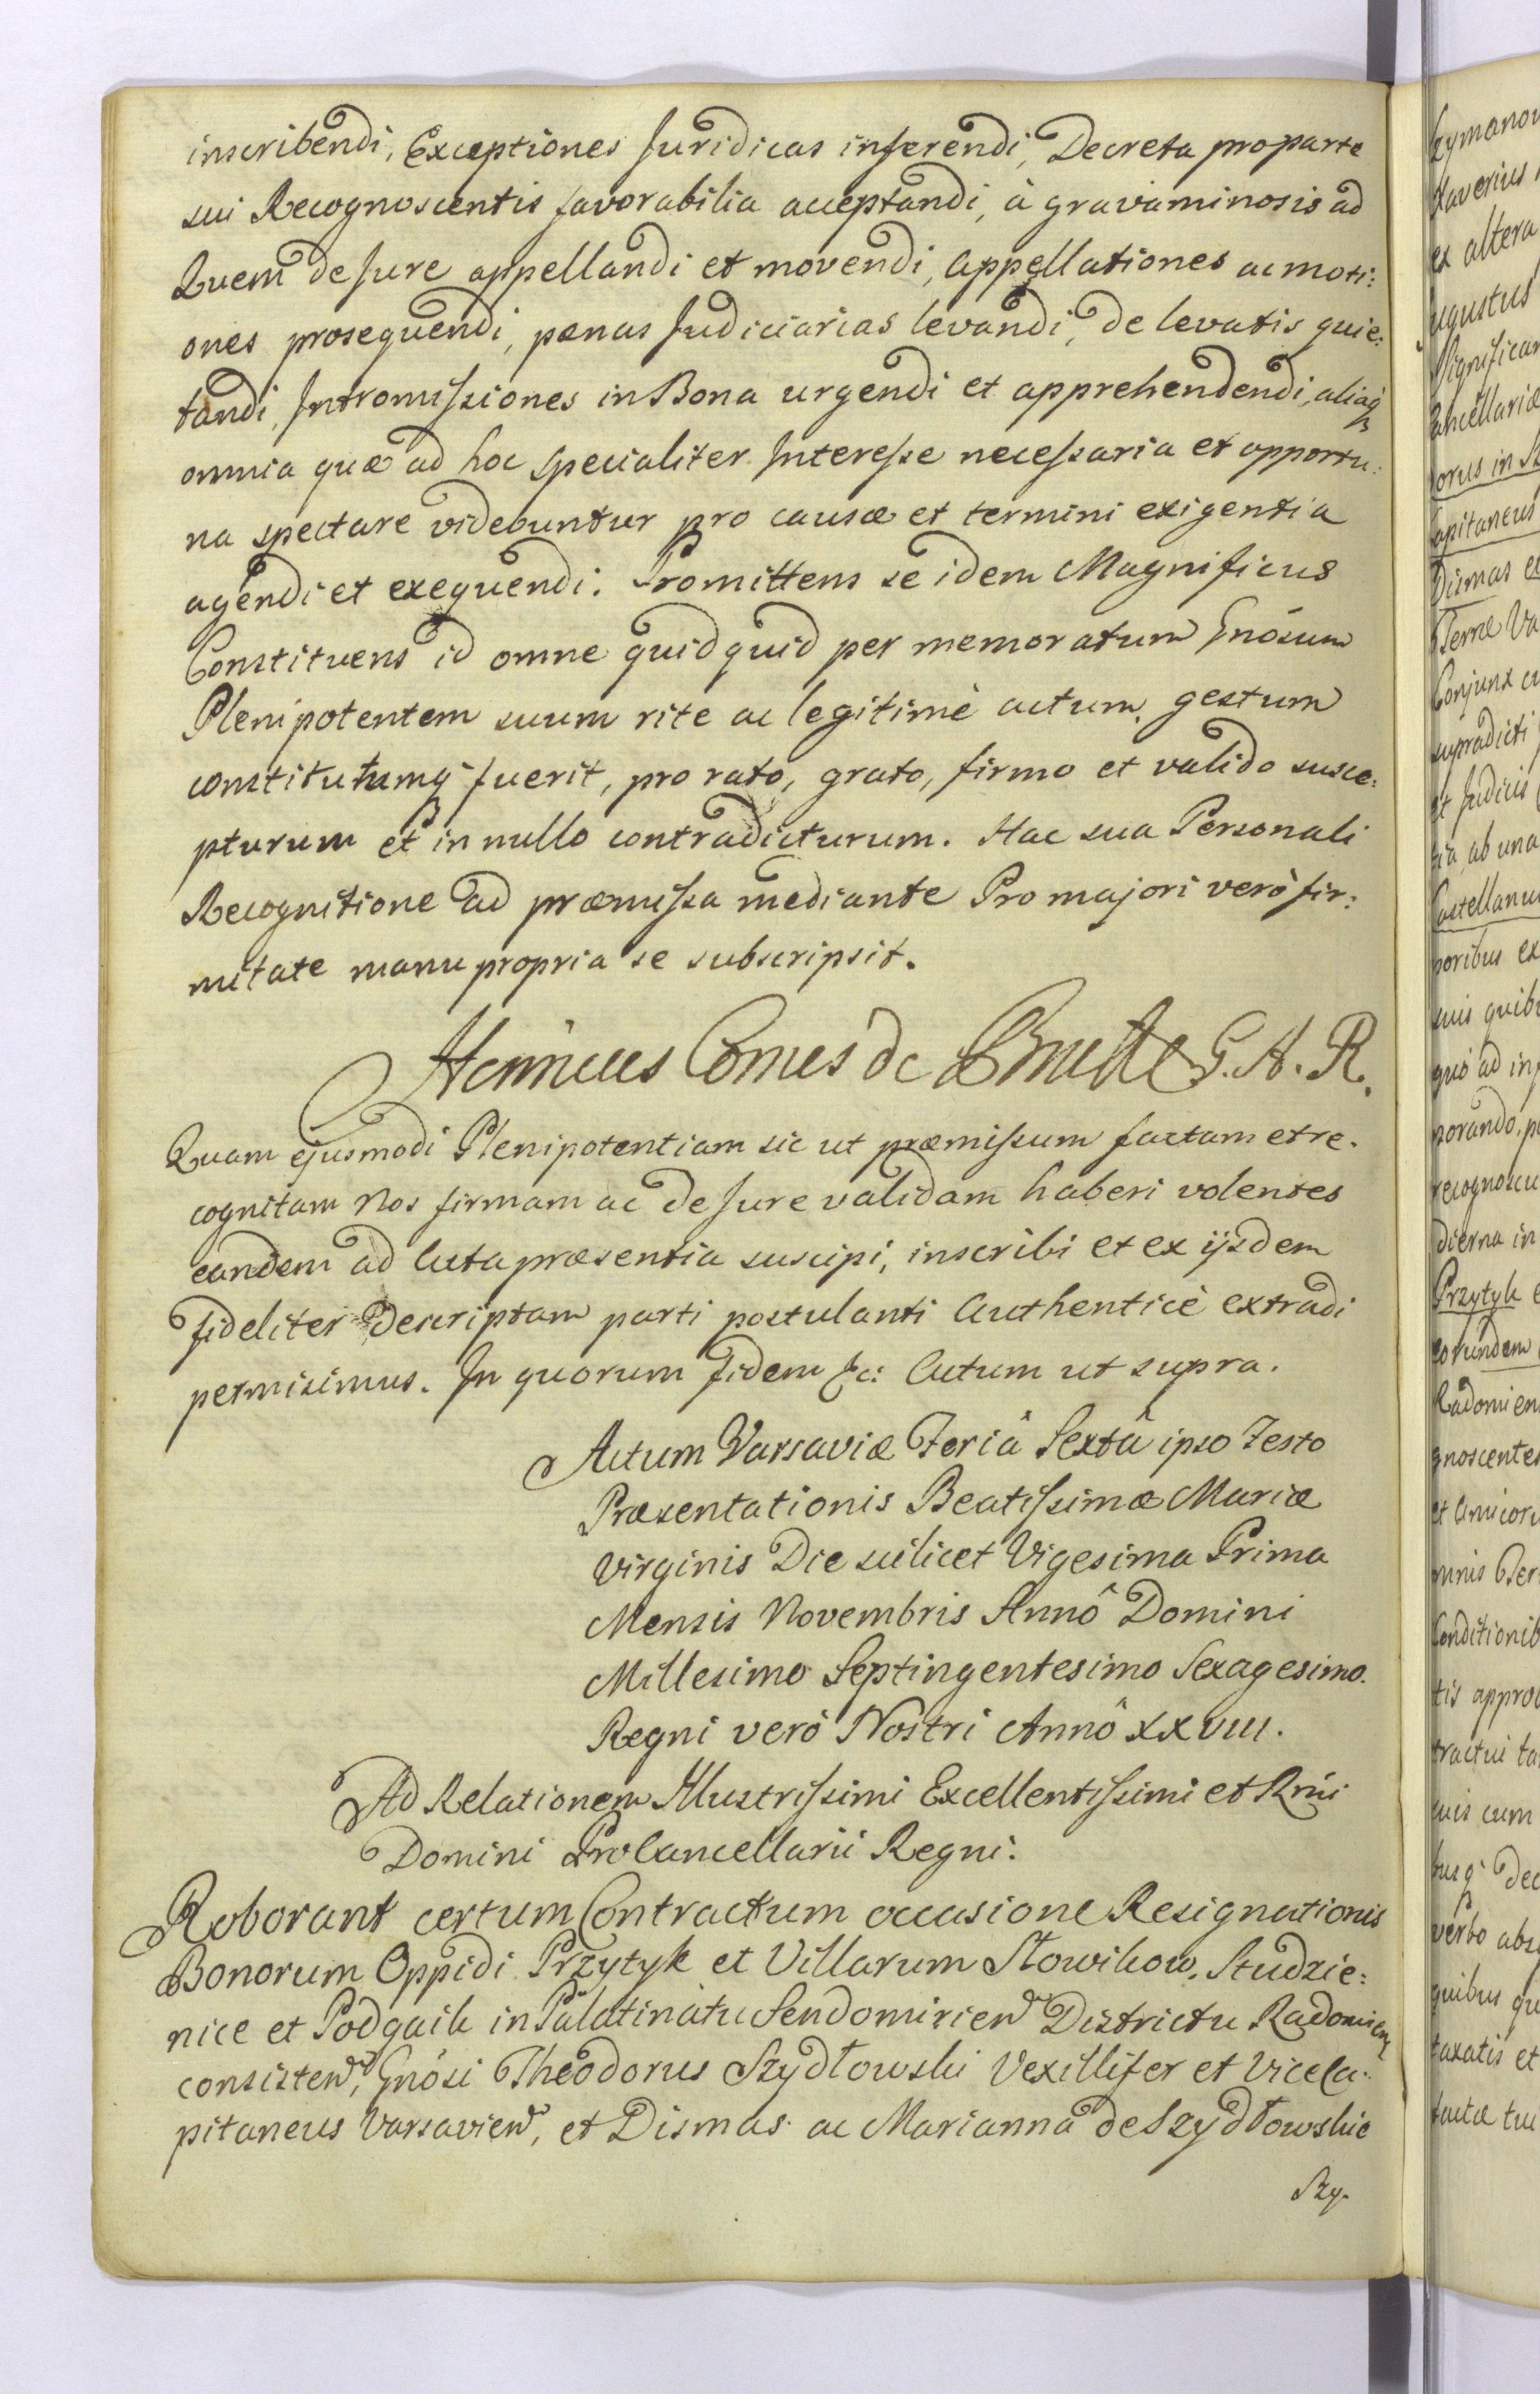 inscribendi, Exceptiones Juridicas inferendi, Decreta pro parte
sui Recognoscentis favorabilia acceptandi, à gravaminosis ad
Quem de Jure appellandi et movendi, Appellationes ac moti:
ones prosequendi, pænas Judiciarias levandi, de levatis quie:
tandi, Intromissiones in Bona urgendi et apprehendendi, aliaq
omnia quæ ad hoc specialiter Interesse necessaria et opportu:
na spectare videbuntur pro causæ et termini exigentia
agendi et exequendi. Promittens se idem Magnificus
Constituens id omne quidquid per memoratum Gnósum
Plenipotentem suum rite ac legitimè actum, gestum
constitutumq fuerit, pro rato, grato, firmo et valido susce:
pturum et in nullo contradicturum. Hac sua Personali
Recognitione ad præmissa mediante Pro majori verò fir:
mitate manu propria se subscripsit.
Henricus Comes de Bruhl G. A. R.
Quam ejusmodi Plenipotentiam sic ut præmissum factam et re.
cognitam Nos firmam ac de Jure validam haberi volentes
eandem ad Acta præsentia suscipi, inscribi et ex ijsdem
fideliter descriptam parti postulanti Authenticè extradi
permisimus. In quorum fidem &c: Actum ut supra.
Actum Varsaviæ Feriâ Sextâ ipso Festo
Præsentationis Beatissimæ Mariæ
Virginis Die scilicet Vigesima Prima
Mensis Novembris Annô Domini
Millesimo Septingentesimo Sexagesimo.
Regni verò Nostri Annô XXVIII.
Ad Relationem Illustrissimi Excellentissimi et Rmi
Domini ProCancellarii Regni.
Roborant certum Contractum occasione Resignationis
Bonorum Oppidi Przytyk et Villarum Słowikow, Studzie:
nice et Podgaik in Palatinatu Sendomirien Districtu Radomien
consisten, Gnósi Theodorus Szydłowski Vexillifer et ViceCa:
pitaneus Varsavien, et Dismas ac Marianna de Szydłowskie
Szy.